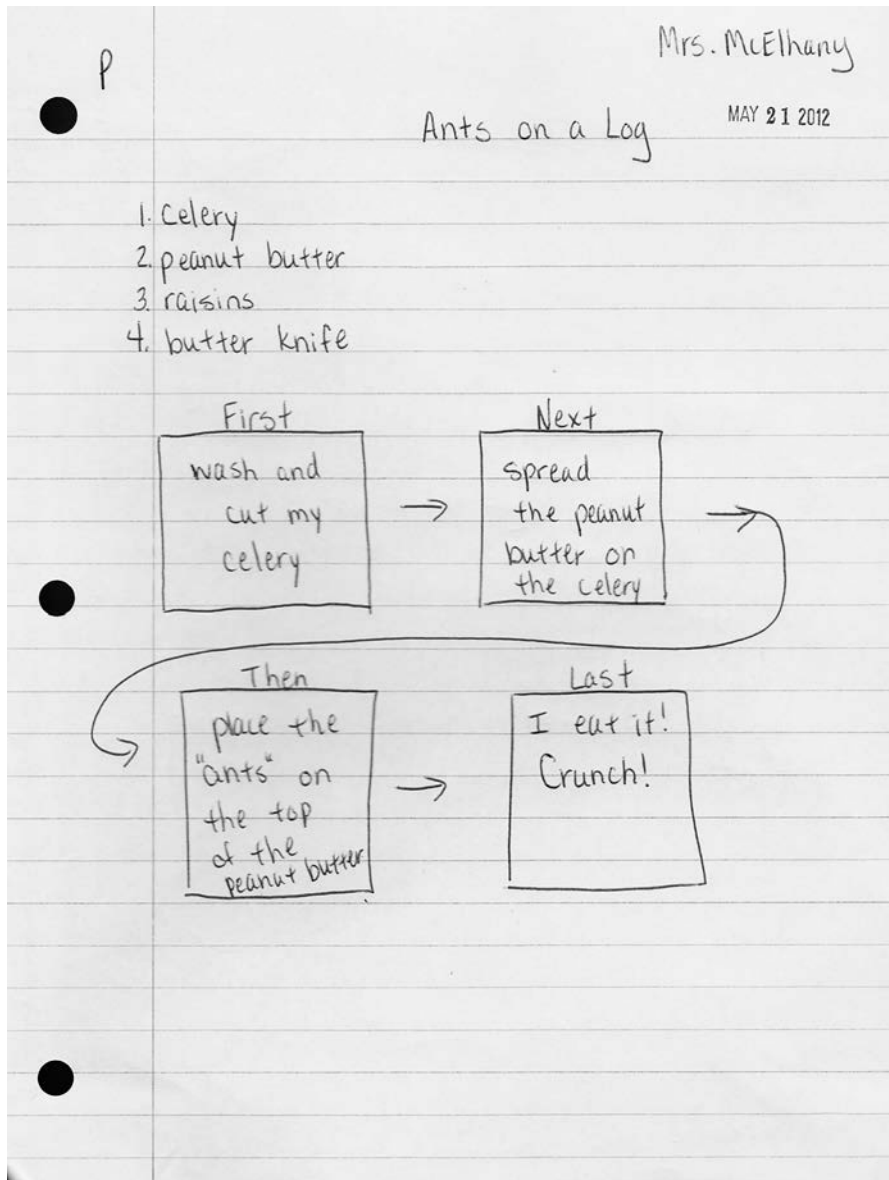 Mrs. McElhany
P
MAY 21 2012
Ants on a Log
1. Celery
2. peanut butter
3. raisins
4. butter knife
First
wash and
cut my
celery
Next
spread
the peanut
butter on
the celery
Then
place the
"ants" on
the top
of the
peanut butter
Last
I eat it!
Crunch!